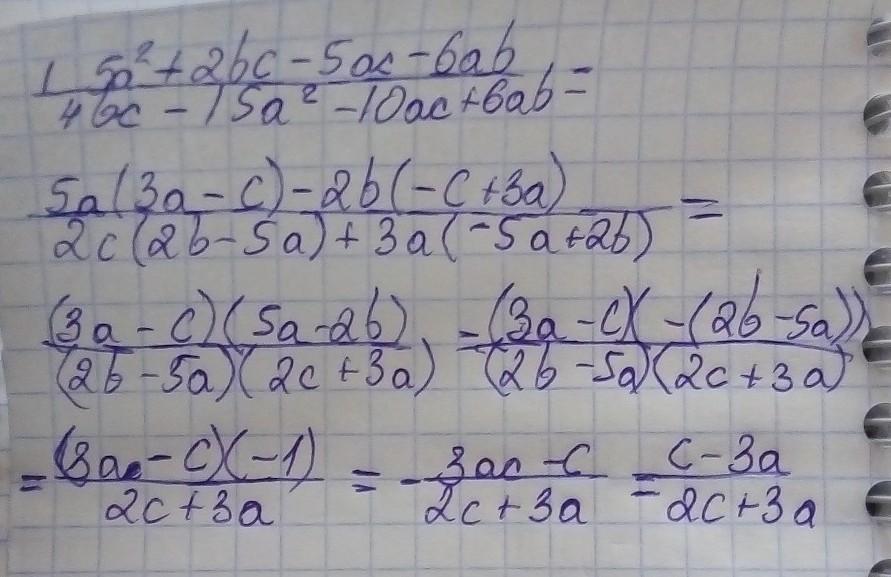 15a² + 2bc - 5ac - 6ab
4bc - 15a² - 10ac + 6ab =
5a(3a - c) - 2b(-c + 3a) =
2c(2b - 5a) + 3a(-5a + 2b)
(3a - c)(5a - 2b) = (3a - c)(-(2b - 5a))
(2b - 5a)(2c + 3a) (2b - 5a)(2c + 3a)
= (3a - c)(-1) = - 3a - c = c - 3a
2c + 3a 2c + 3a 2c + 3a